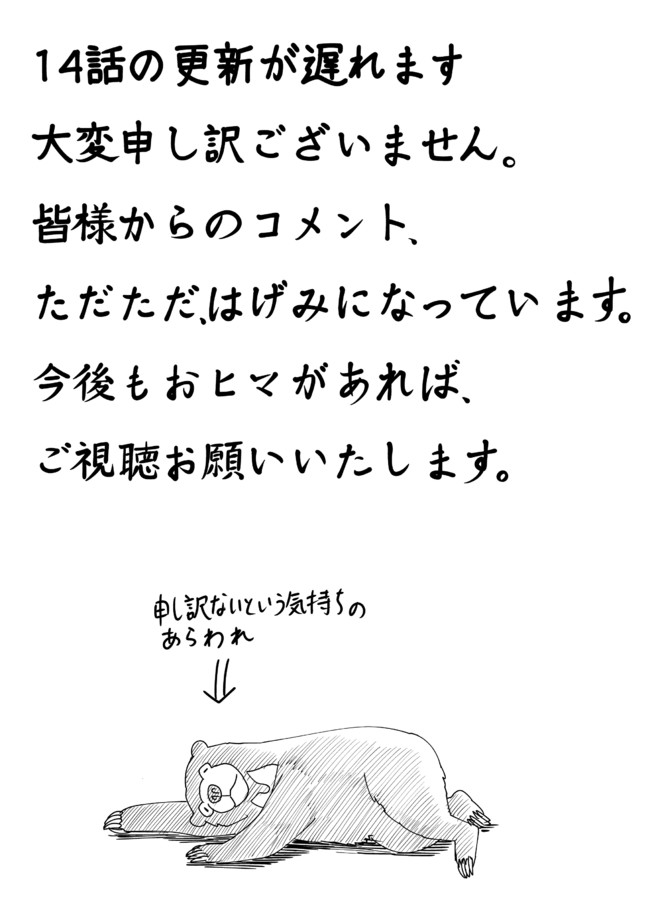 14話の更新が遅れます
大変申し訳ございません。
皆様からのコメント、
ただただ、はげみになっています。
今後もおヒマがあれば、
ご視聴お願いいたします。
申し訳ないという気持ちの
あらわれ